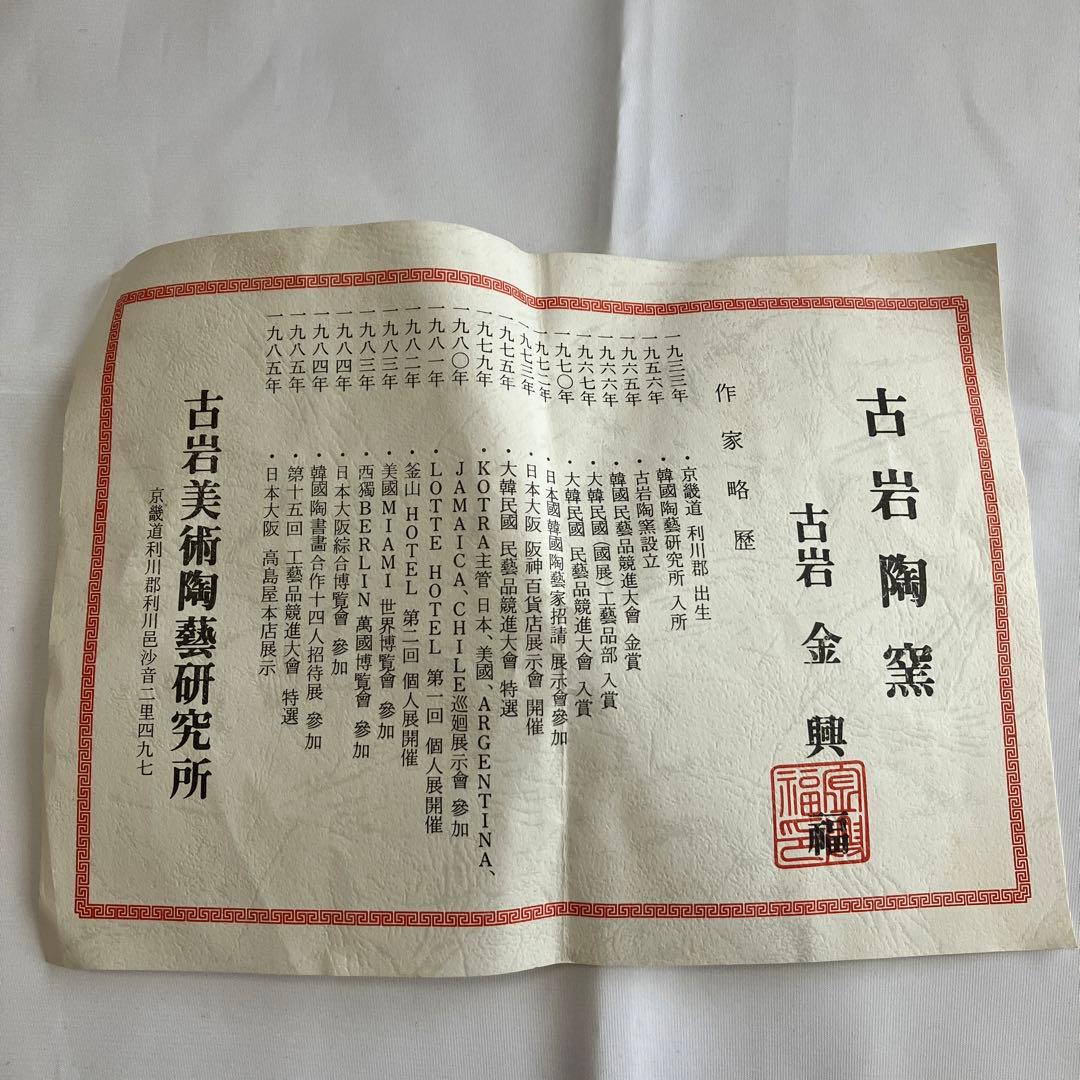 古岩陶窯
古岩 金興福
作家略歷
一九三三年 ・京畿道 利川郡 出生
一九五六年 ・韓國陶藝研究所 入所
一九六五年 ・古岩陶窯設立
一九六六年 ・韓國民藝品競進大會 金賞
一九六七年 ・大韓民國(國展)工藝品部 入賞
一九七〇年 ・大韓民國 民藝品競進大會 入賞
一九七二年 ・日本國 韓國陶藝家招請 展示會參加
一九七三年 ・日本大阪 阪神百貨店展示會 開催
一九七五年 ・大韓民國 民藝品競進大會 特選
一九七九年 ・KOTRA主管 日本、美國、ARGENTINA、
一九八〇年 JAMAICA、CHILE巡廻展示會 參加
一九八一年 ・LOTTE HOTEL 第一回 個人展開催
一九八二年 ・釜山 HOTEL 第二回 個人展開催
一九八三年 ・美國MIAMI 世界博覧會 參加
一九八三年 ・西獨BERLIN 萬國博覧會 參加
一九八四年 ・日本大阪綜合博覧會 參加
一九八四年 ・韓國陶書畫合作十四人招待展 參加
一九八五年 ・第十五回 工藝品競進大會 特選
一九八五年 ・日本大阪 高島屋本店展示
古岩美術陶藝研究所
京畿道利川郡利川邑沙音二里四九七